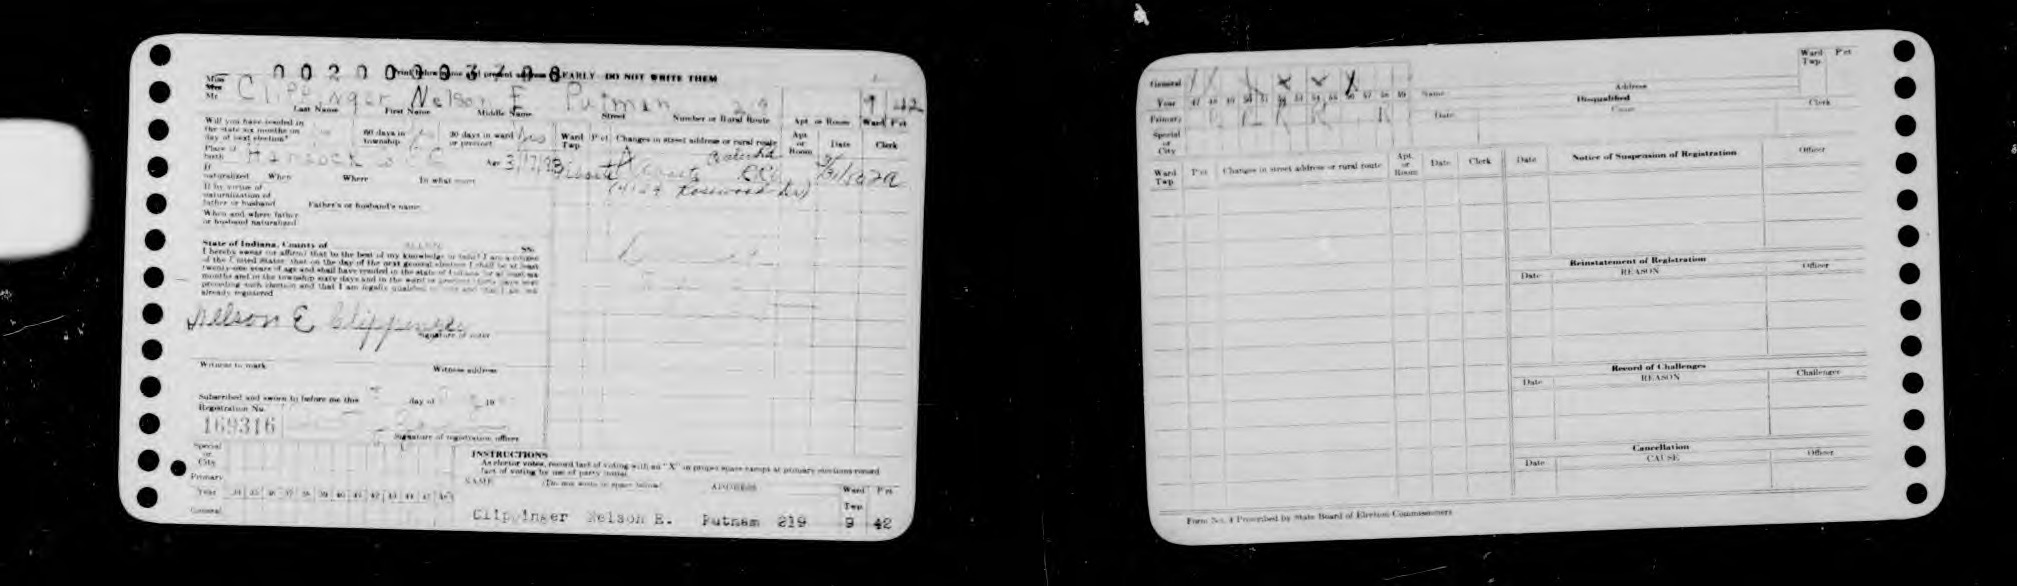 0020003708
Print below name and present address CLEARLY DO NOT WRITE THEM
Miss
Mrs
Mr. Clippinger Nelson E Putman 219 9 42
Last Name First Name Middle Name Street Number or Rural Route Apt. or Room Ward P'ct
Will you have resided in
the state six months on
day of next election?
60 days in
township
30 days in ward
or precinct yes
Ward
Twp.
P'ct
Changes in street address or rural route
Apt.
or
Room
Date
Clerk
Place of
birth Hancock Age 3/17/93
(4129 Rosewood Dr)
If
naturalized When Where In what court
If by virtue of
naturalization of
father or husband Father's or husband's name
When and where father
or husband naturalized
State of Indiana, County of ALLEN SS:
I hereby swear (or affirm) that to the best of my knowledge or belief I am a citizen
of the United States; that on the day of the next general election I shall be at least
twenty-one years of age and shall have resided in the state of Indiana for at least six
months and in the township sixty days and in the ward or precinct thirty days next
preceding such election and that I am legally qualified to vote and that I am not
already registered
Nelson E Clippinger
Signature of voter
Witness to mark Witness address
Subscribed and sworn to before me this day of 19
Registration No.
169316
Signature of registration officer
Special
or
City
Primary
Year 34 35 36 37 38 39 40 41 42 43 44 45 46
General
INSTRUCTIONS
As elector votes, record fact of voting with an "X" in proper space except at primary elections record
fact of voting by use of party initial
NAME (Do not write in space below) ADDRESS Ward
Twp.
P'ct
Clippinger Nelson E. Putnam 219 9 42
General X X X X X X
Year 47 48 49 50 51 52 53 54 55 56 57 58 59
Primary R R R R R
Special
or
City
Name Address Ward
Twp. P'ct
Disqualified
Date Cause Clerk
Ward
Twp.
P'ct
Changes in street address or rural route
Apt.
or
Room
Date
Clerk
Date Notice of Suspension of Registration Officer
Reinstatement of Registration
Date REASON Officer
Record of Challenges
Date REASON Challenger
Cancellation
Date CAUSE Officer
Form No. 4 Prescribed by State Board of Election Commissioners